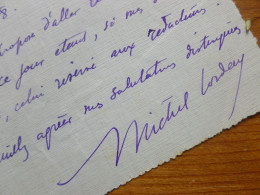 8.
propose d'aller
ce jour étant, si mes
, celui réservé aux rédacteurs.
agréer mes salutations distinguées
Michel Corday